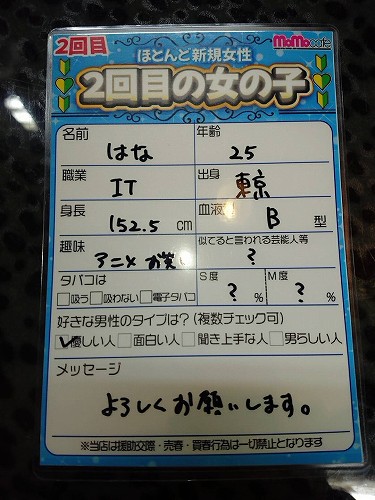 2回目
MoMo cafe
ほとんど新規女性
2回目の女の子
名前 年齢
はな 25
職業 出身
IT 東京
身長 血液
152.5 cm B 型
趣味 似てると言われる芸能人等
アニメ お笑い ?
タバコは S度 M度
吸う 吸わない 電子タバコ ? % ? %
好きな男性のタイプは?(複数チェック可)
優しい人 面白い人 聞き上手な人 男らしい人
メッセージ
よろしくお願いします。
※当店は援助交際・売春・買春行為は一切禁止となります